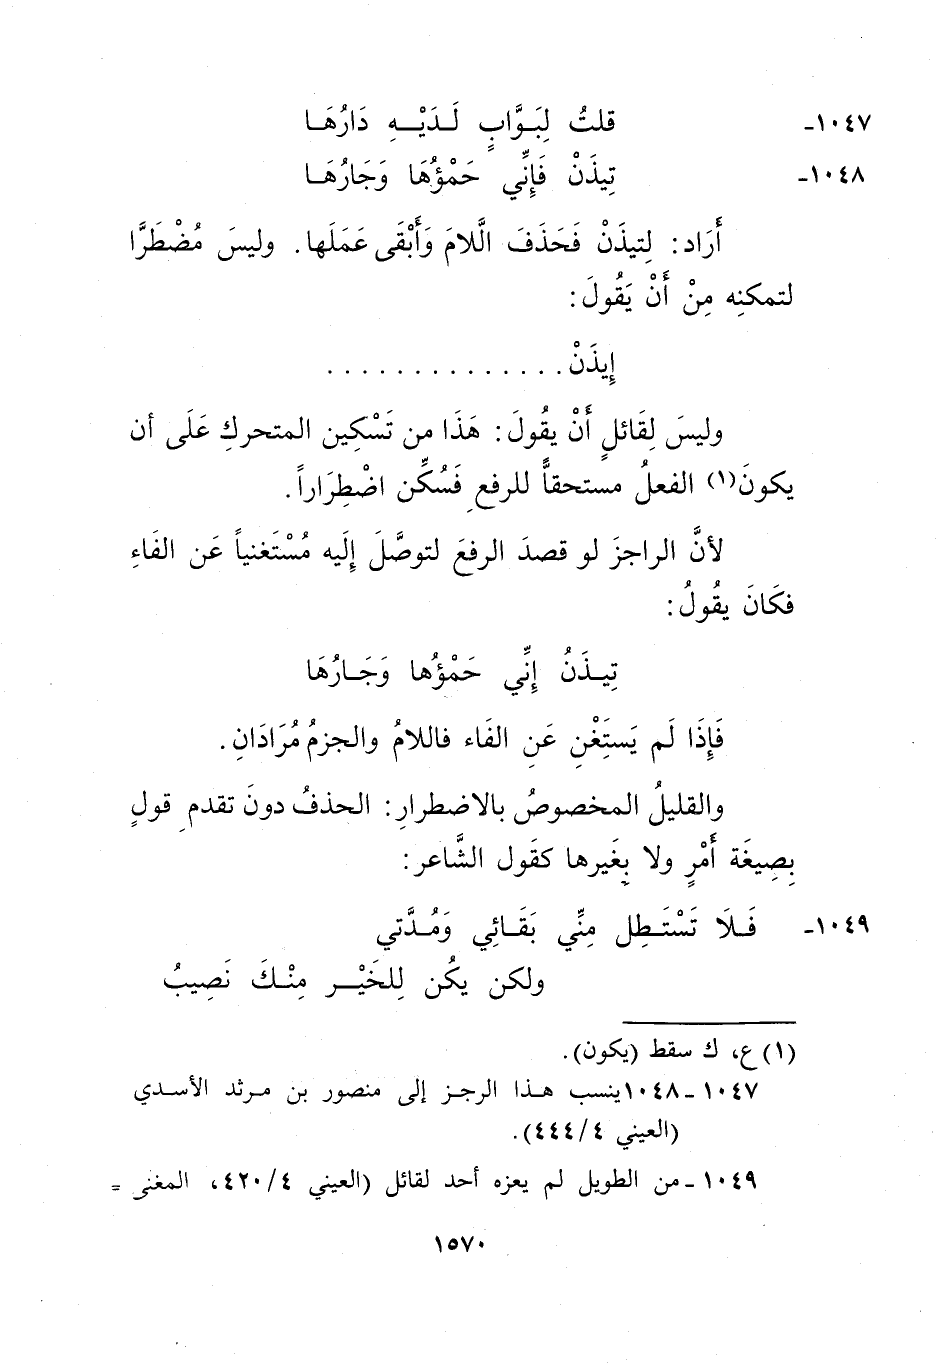 ١٠٤٧- قلتُ لِبَـوَّابٍ لَـدَيْـهِ دَارُهَـا
١٠٤٨- تِيذَنْ فَإِنِّي حَمْؤُهَا وَجَارُهَـا
أَرَاد: لِتيذَنْ فَحَذَفَ الَّلامَ وَأَبْقَى عَمَلَها. وليسَ مُضْطَرًّا
لتمكنِه مِنْ أَنْ يَقُولَ:
إِيذَنْ . . . . . . . . . . . . . .
وليسَ لِقَائلٍ أَنْ يقُولَ: هَذَا من تَسْكِين المتحركِ عَلَى أن
يكونَ(١) الفعلُ مستحقاً للرفعِ فَسُكِّن اضْطِرَاراً.
لأنَّ الراجزَ لو قصدَ الرفعَ لتوصَّلَ إِلَيه مُسْتَغنياً عَن الفَاءِ
فكَانَ يقُولُ:
تِيـذَنُ إِنِّي حَمْؤُها وَجَـارُهَا
فَإِذَا لَم يَستَغِْنِ عَنِ الفَاء فاللامُ والجزمُ مُرَادَانِ.
والقليلُ المخصوصُ بالاضطرارِ: الحذفُ دونَ تقدمِ قولٍ
بِصِيغَة أَمْرٍ ولا بِغَيرها كقَول الشَّاعر:
١٠٤٩- فَـلَا تَسْتَـطِل مِنِّي بَقَـائِي وَمُـدَّتي
ولكن يكُن لِلخَيْـرِ مِنْـكَ نَصِيبُ
(١) ع، ك سقط (يكون).
١٠٤٧ - ١٠٤٨ ينسب هـذا الرجـز إلى منصور بن مـرثد الأسـدي
(العيني ٤/٤٤٤).
١٠٤٩ - من الطويل لم يعزه أحد لقائل (العيني ٤/٤٢٠، المغنى =
١٥٧٠